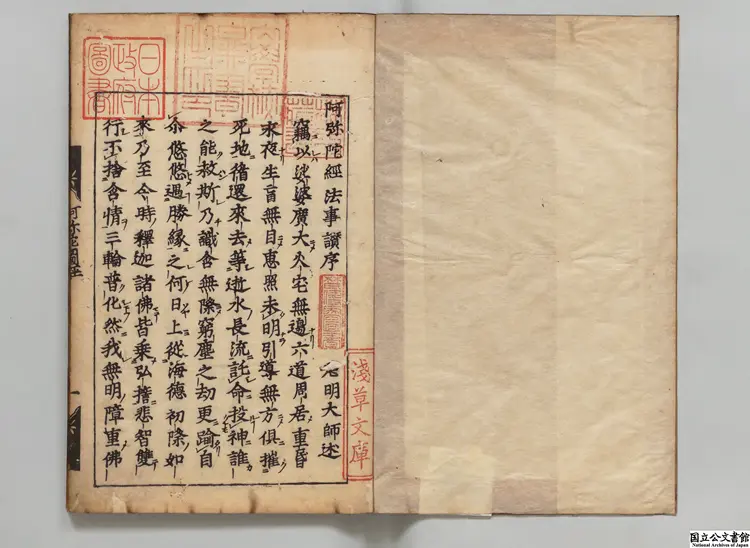 阿弥陀經法事讃序 光明大師述
竊以娑婆廣大火宅無邊六道周居重昏
永夜生盲無目恵照未明引導無方俱摧
死地循還來去等逝水長流託命投神誰
之能救斯乃識含無際窮塵之劫更踰自
尒悠悠遇勝縁之何日上從海德初際如
來乃至今時釋迦諸佛皆乗弘誓悲智雙
行不捨含情三輪普化然我無明障重佛
淺草文庫
日本政府圖書
国立公文書館
National Archives of Japan